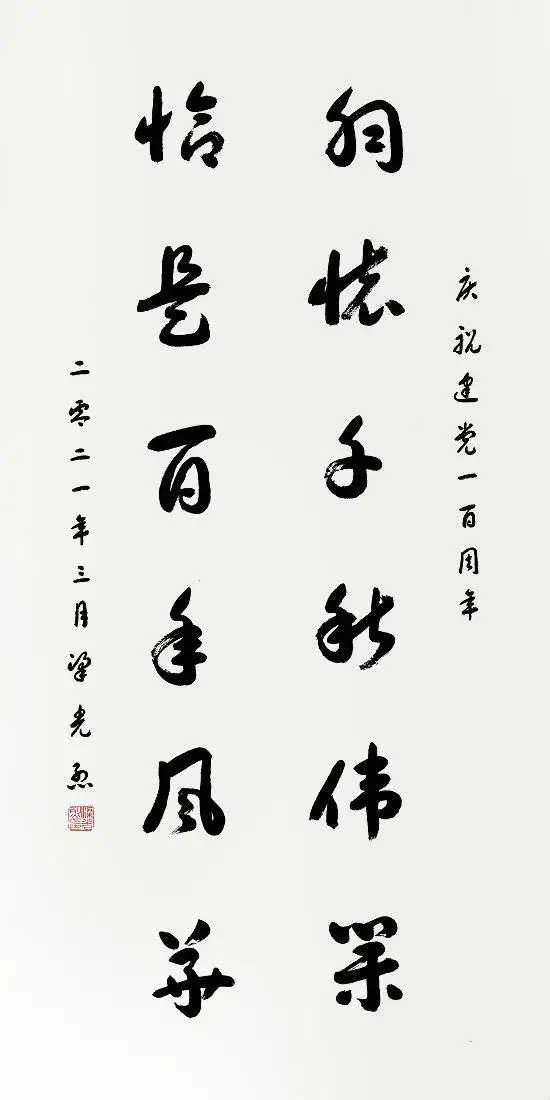 庆祝建党一百周年
胸怀千秋伟业
恰是百年风华
二零二一年三月梁光烈